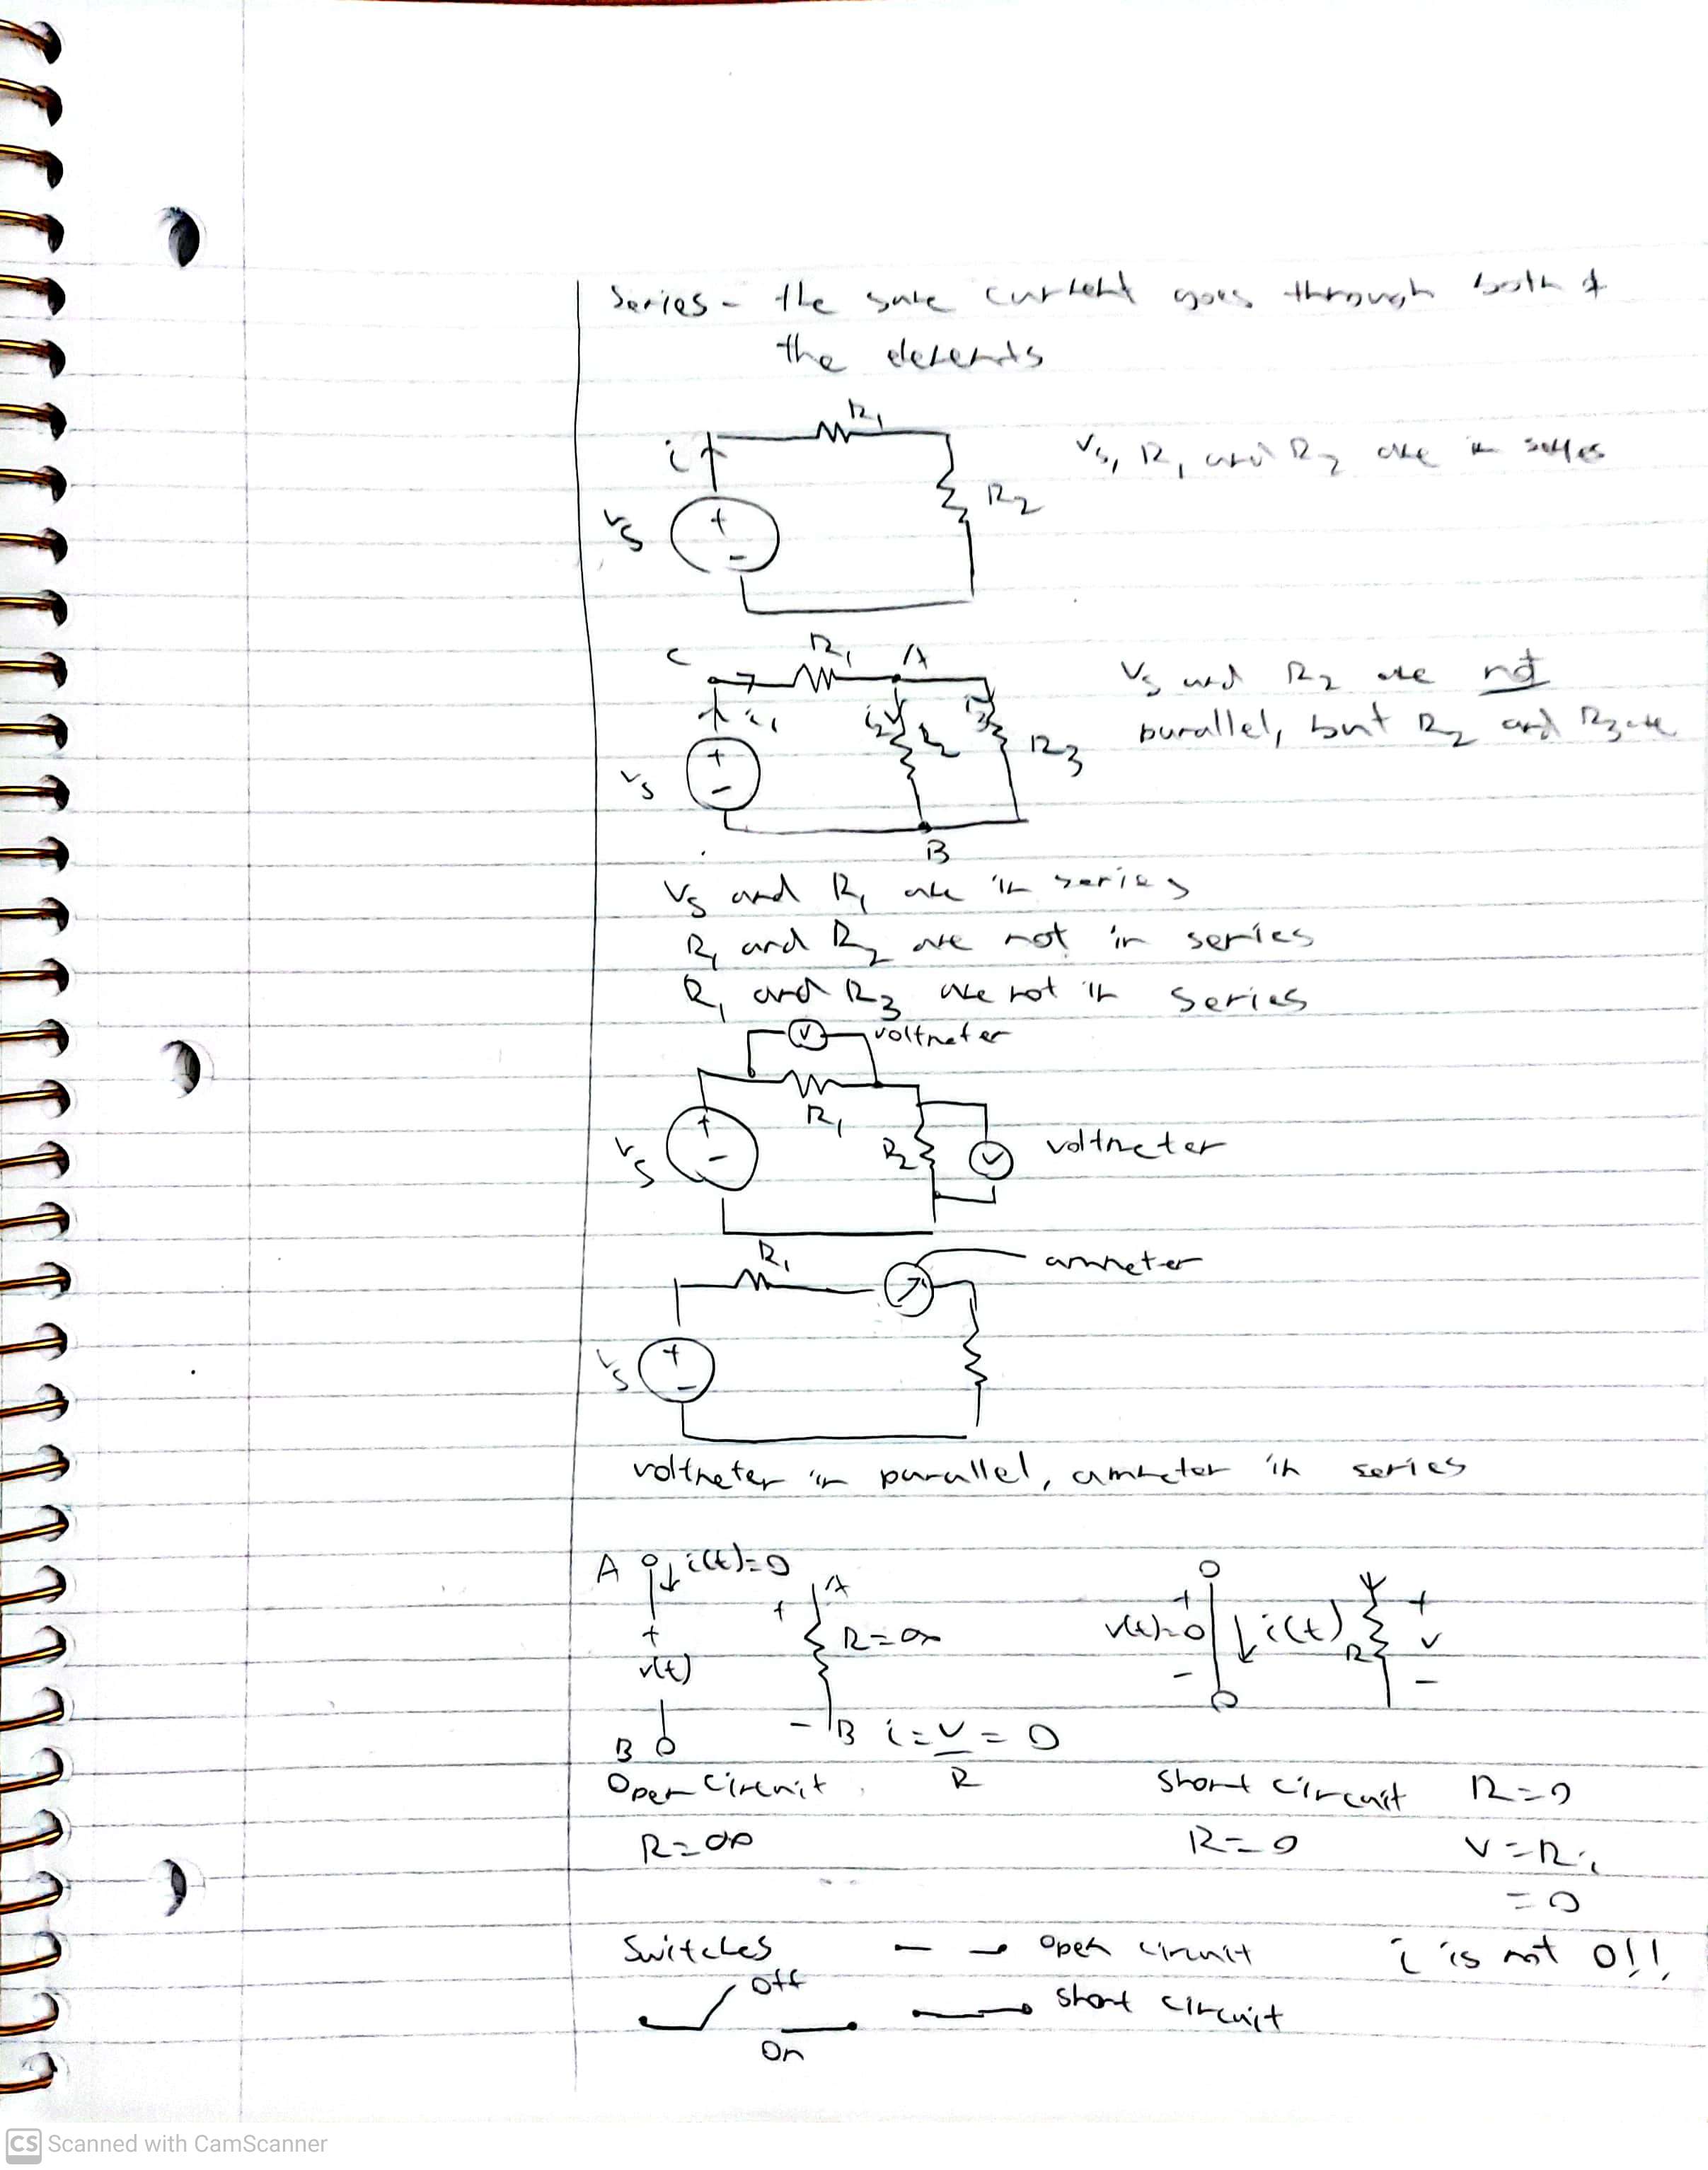 Series - the same current goes through both of
the elements
R1
i
Vs, R1 and R2 are in series
R2
+
Vs
-
C
R1
A
Vs and R2 are not
i1
i2
i3
parallel, but R2 and R3 are
R2
R3
+
Vs
-
B
Vs and R1 are in series
R1 and R2 are not in series
R1 and R3 are not in series
V
voltmeter
R1
+
Vs
-
R2
V
voltmeter
R1
ammeter
+
Vs
-
voltmeter in parallel, ammeter in series
A
i(t)=0
A
+
+
+
+
R=∞
v(t)=0
i(t)
R
v
v(t)
-
-
-
B
i=V/R=0
B
Open circuit
short circuit
R=0
R=∞
R=0
V=Ri
=0
Switches
open circuit
i is not 0!!
Off
short circuit
On
CS Scanned with CamScanner